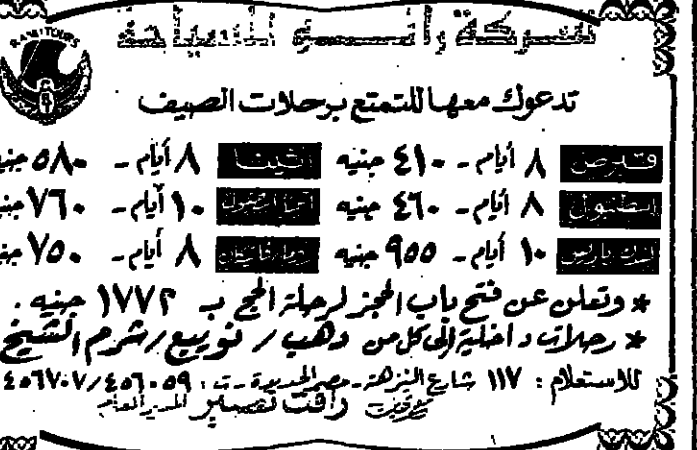 RAWI TOURS
شركة للسياحة
تدعوك معها للتمتع برحلات الصيف
قبرص ٨ أيام - ٤١٠ جنيه أثينا ٨ أيام - ٥٨٠ جنيه
اسطنبول ٨ أيام - ٤٦٠ جنيه ١٠ أيام - ٧٦٠ جنيه
لندن باريس ١٠ أيام - ٩٥٥ جنيه ٨ أيام - ٧٥٠ جنيه
* وتعلن عن فتح باب الحجز لرحلة الحج بـ ١٧٧٢ جنيه .
* رحلات داخلية إلى كل من دهب / نويبع / شرم الشيخ
للاستعلام : ١١٧ شارع النزهة - مصر الجديدة - ت : ٤٥٦٠٥٩ / ٤٥٦٧٠٧
رأفت المدير العام